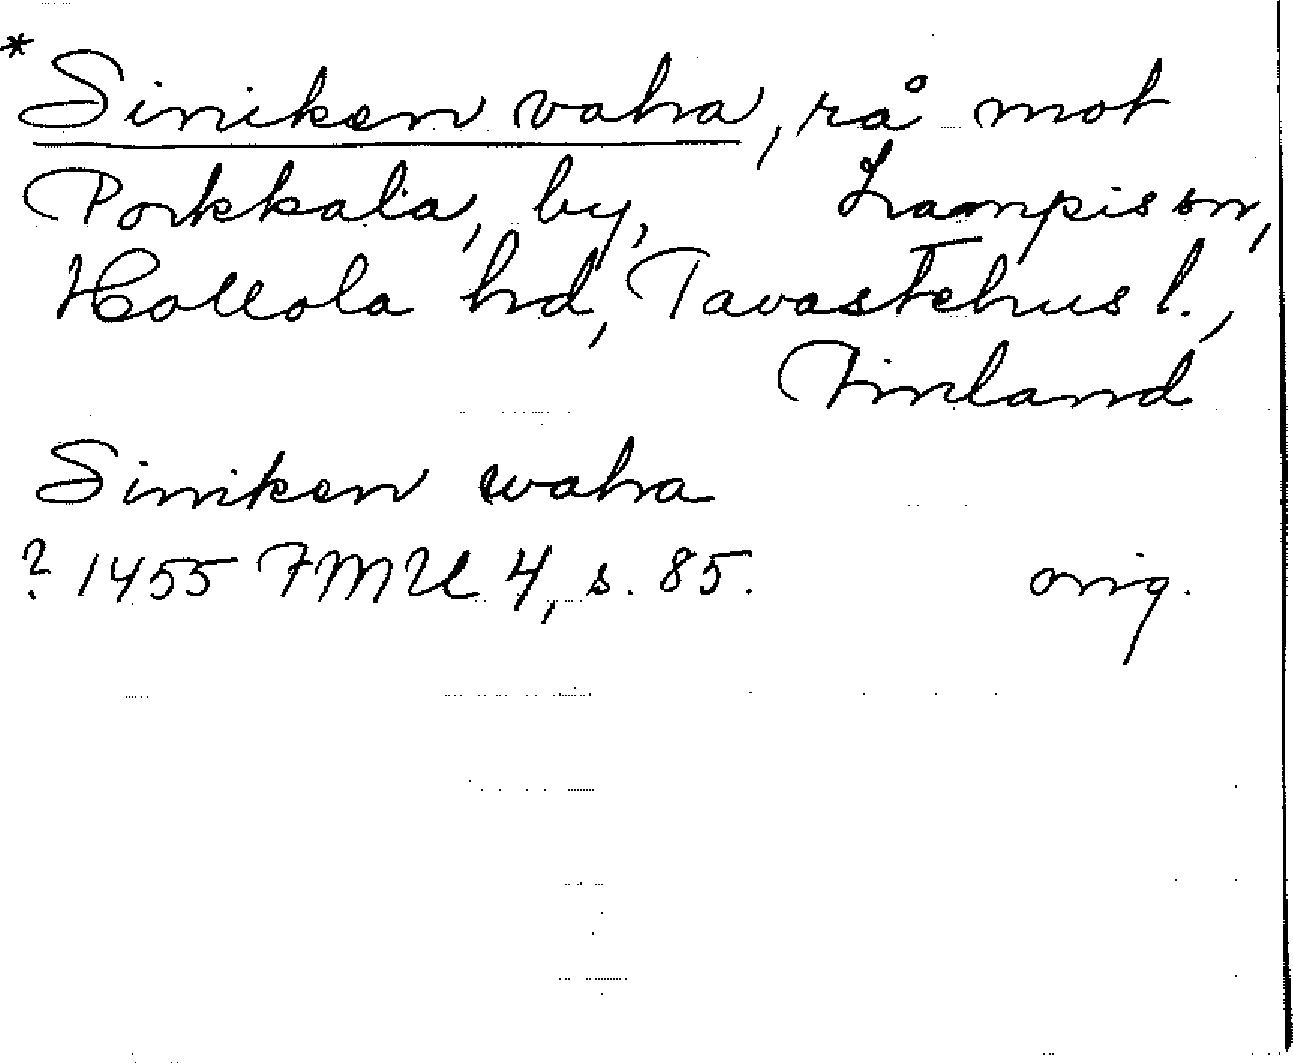 * Siniken vaha, rå mot
Porkkala, by, Lampis sn,
Hollola hd, Tavastehus l.,
Finland
Siniken waha
? 1455 FMU 4, s. 85. orig.